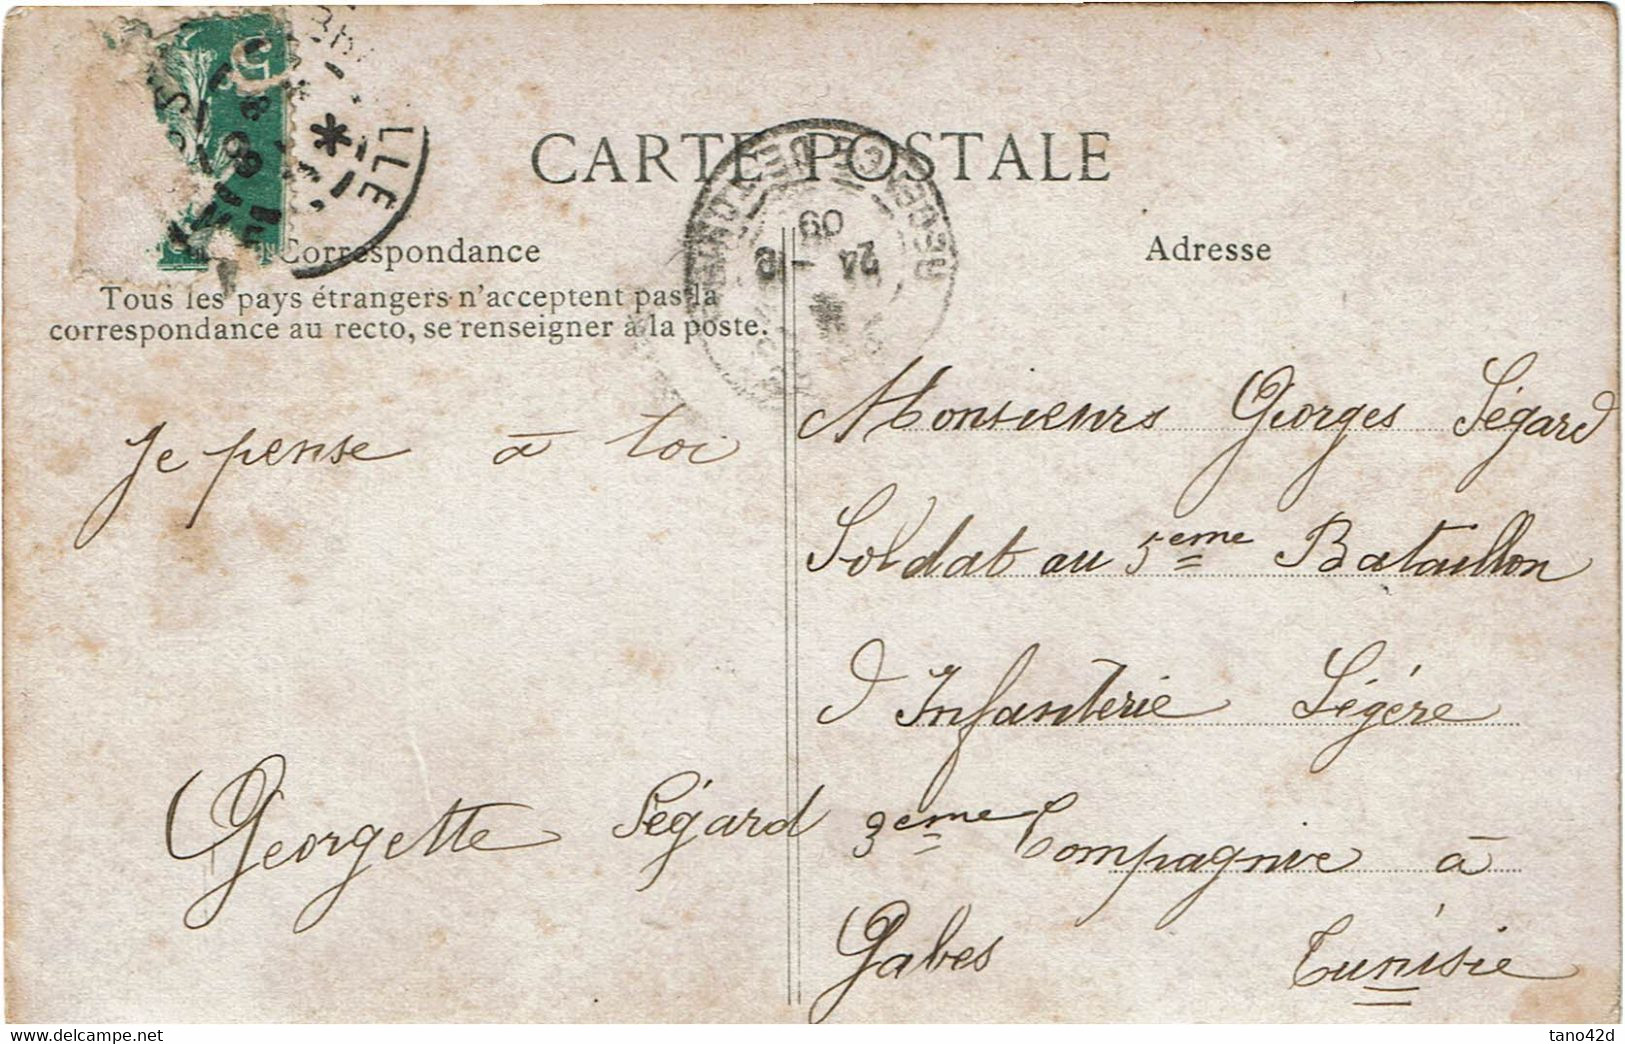 CARTE POSTALE
Correspondance
Adresse
Tous les pays étrangers n'acceptent pas la
correspondance au recto, se renseigner à la poste.
5
LLE
09
24
Je pense à toi
Georgette Ségard
Monsieurs Georges Ségard
Soldat au 5eme Bataillon
d Infanterie Légére
3eme Compagnie à
Gabes Tunisie
www.delcampe.net
tano42d